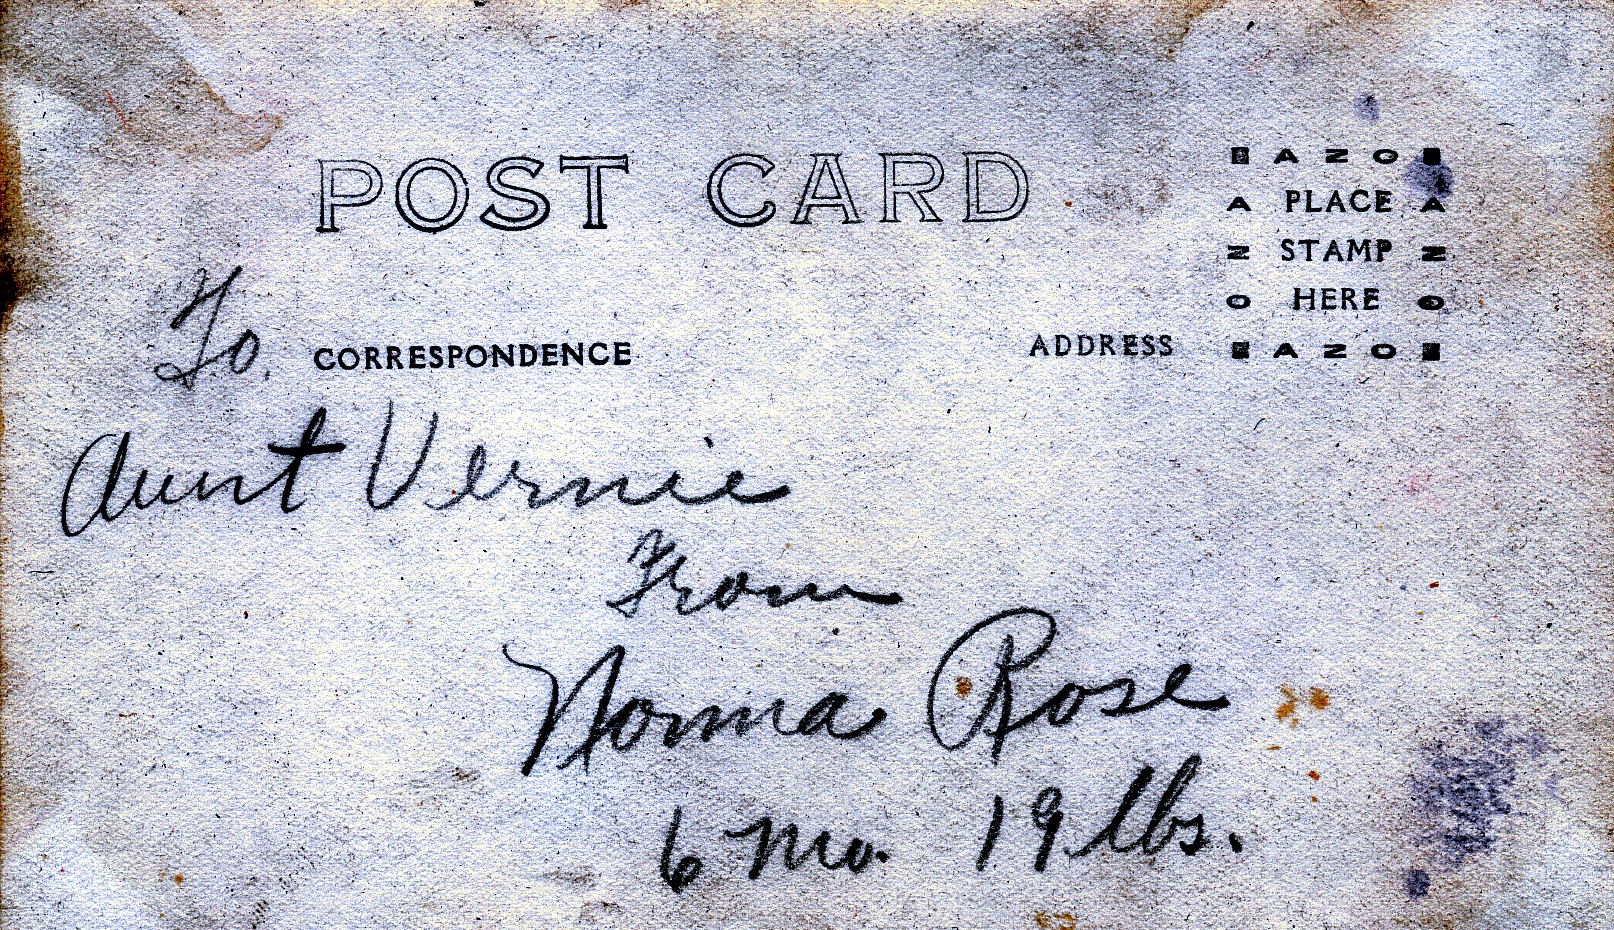 POST CARD
AZO
A PLACE A
Z STAMP Z
O HERE O
AZO
To.
CORRESPONDENCE
ADDRESS
Aunt Vernie
From
Norma Rose
6 mo. 19 lbs.